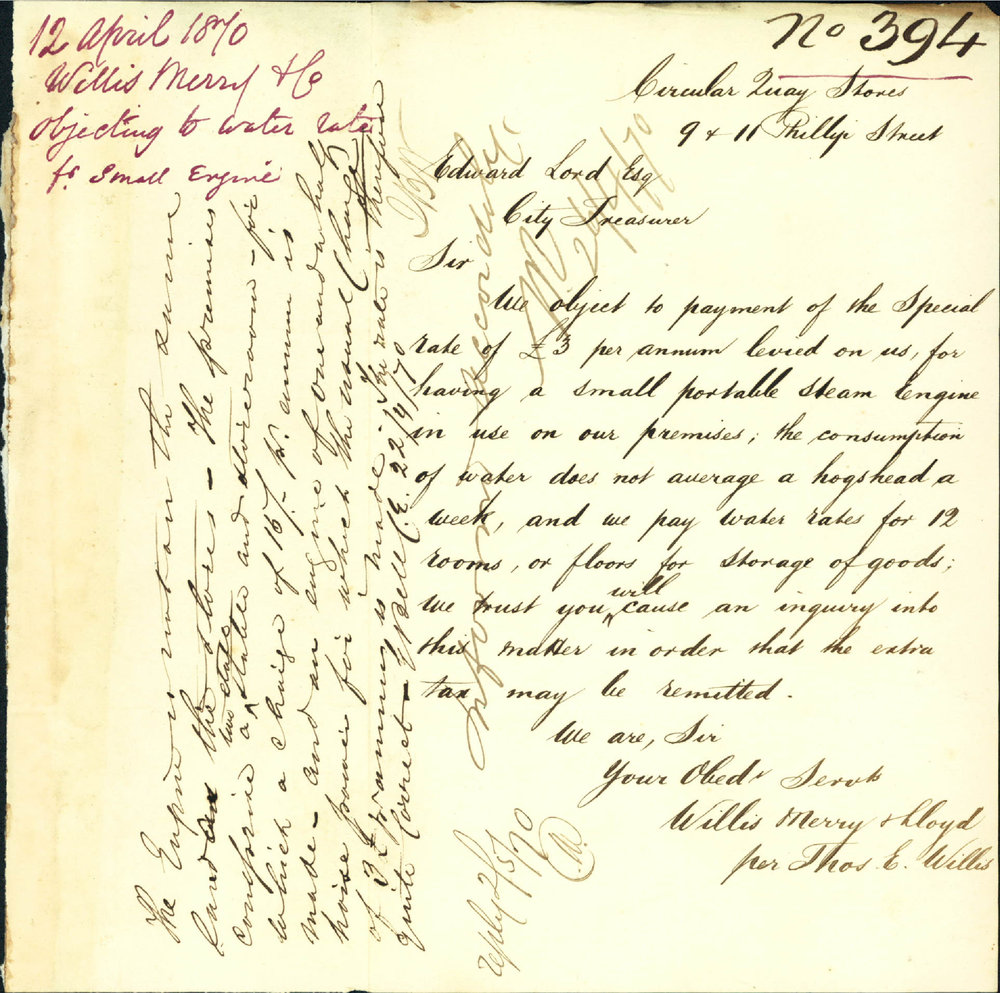 12 April 1870
Willis Merry & Co
Objecting to water rate
fr Small Engine
No 394
Circular Quay Stores
9 & 11 Phillip Street
Edward Lord Esq
City Treasurer
Sir
We object to payment of the Special
rate of £3 per annum levied on us, for
having a small portable Steam Engine
in use on our premises; the consumption
of water does not average a hogshead a
week, and we pay water rates for 12
rooms, or floors for storage of goods;
We trust you will cause an inquiry into
this matter in order that the extra
tax may be remitted.
We are, Sir
Your Obedt Servts
Willis Merry & Lloyd
per Thos. E. Willis
The Engine is not on the same
land as the stores - The premises
comprise a two stall stable and storeroom - for
which a charge of 15/- pr. annum is
made - and an engine of one and a half
horse power for which the usual charge
of 3£ pr annum is made - The rate is therefore
quite correct - Bell C.E. 22/4/70
Inform accordingly
26/4/70
reply 2/5/70